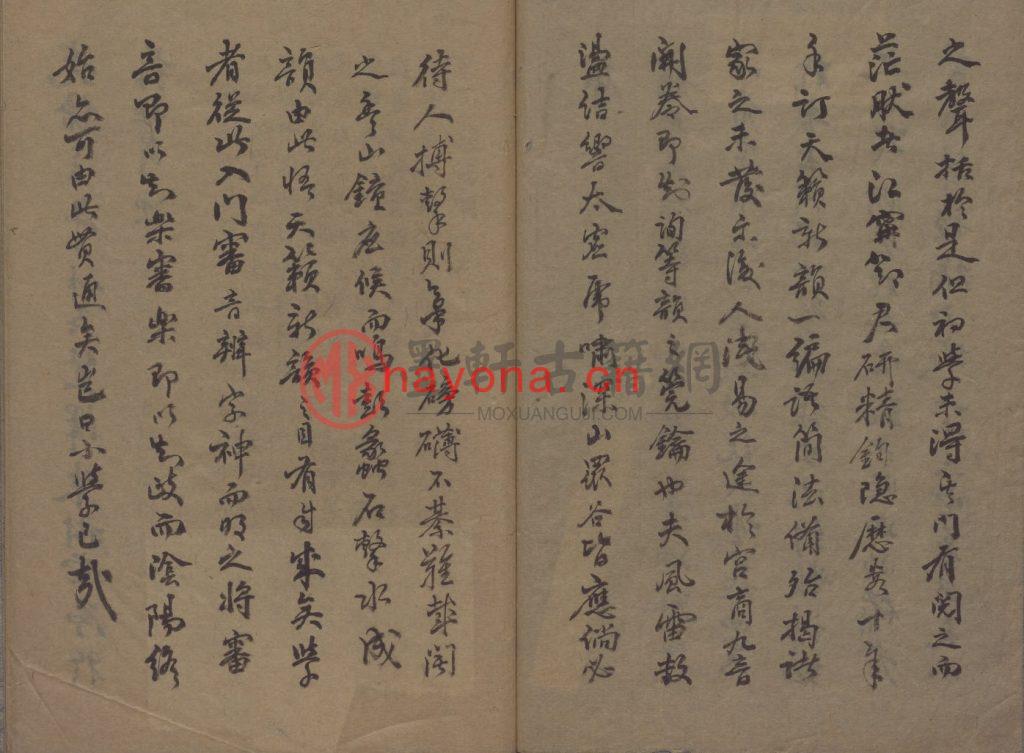 之聲括於是但初學未得其門有閱之而
茫然者江寧鄧君研精鉤隱歷若十年
手訂天籟新韻一編語簡法備殆揭諸
家之未發示後人淺易之途於宮商九音
開卷即知詢等韻之筦鑰也夫風雷鼓
盪結響太空虎嘯深山眾谷皆應倘必
待人搏擊則氣化磅礴不綦難哉聞
之豐山鐘應候而鳴彭蠡石擊水成
韻由此悟天籟新韻之自有由來矣學
者從此入門審音辨字神而明之將審
音即以知樂審樂即以知政而陰陽終
始亦可由此貫通矣豈曰小學已哉
墨軒古籍網
nayona.cn
MOXUANGUJI.COM